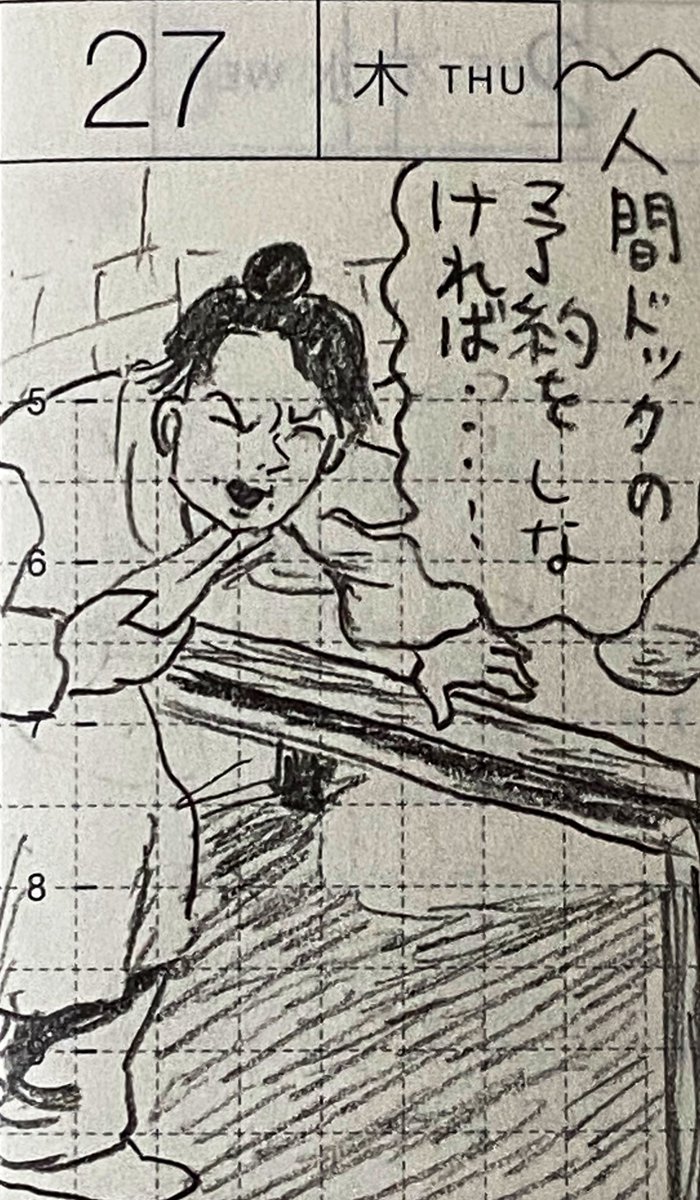 27
木 THU
人間ドックの
予約をしな
ければ……
5
6
8